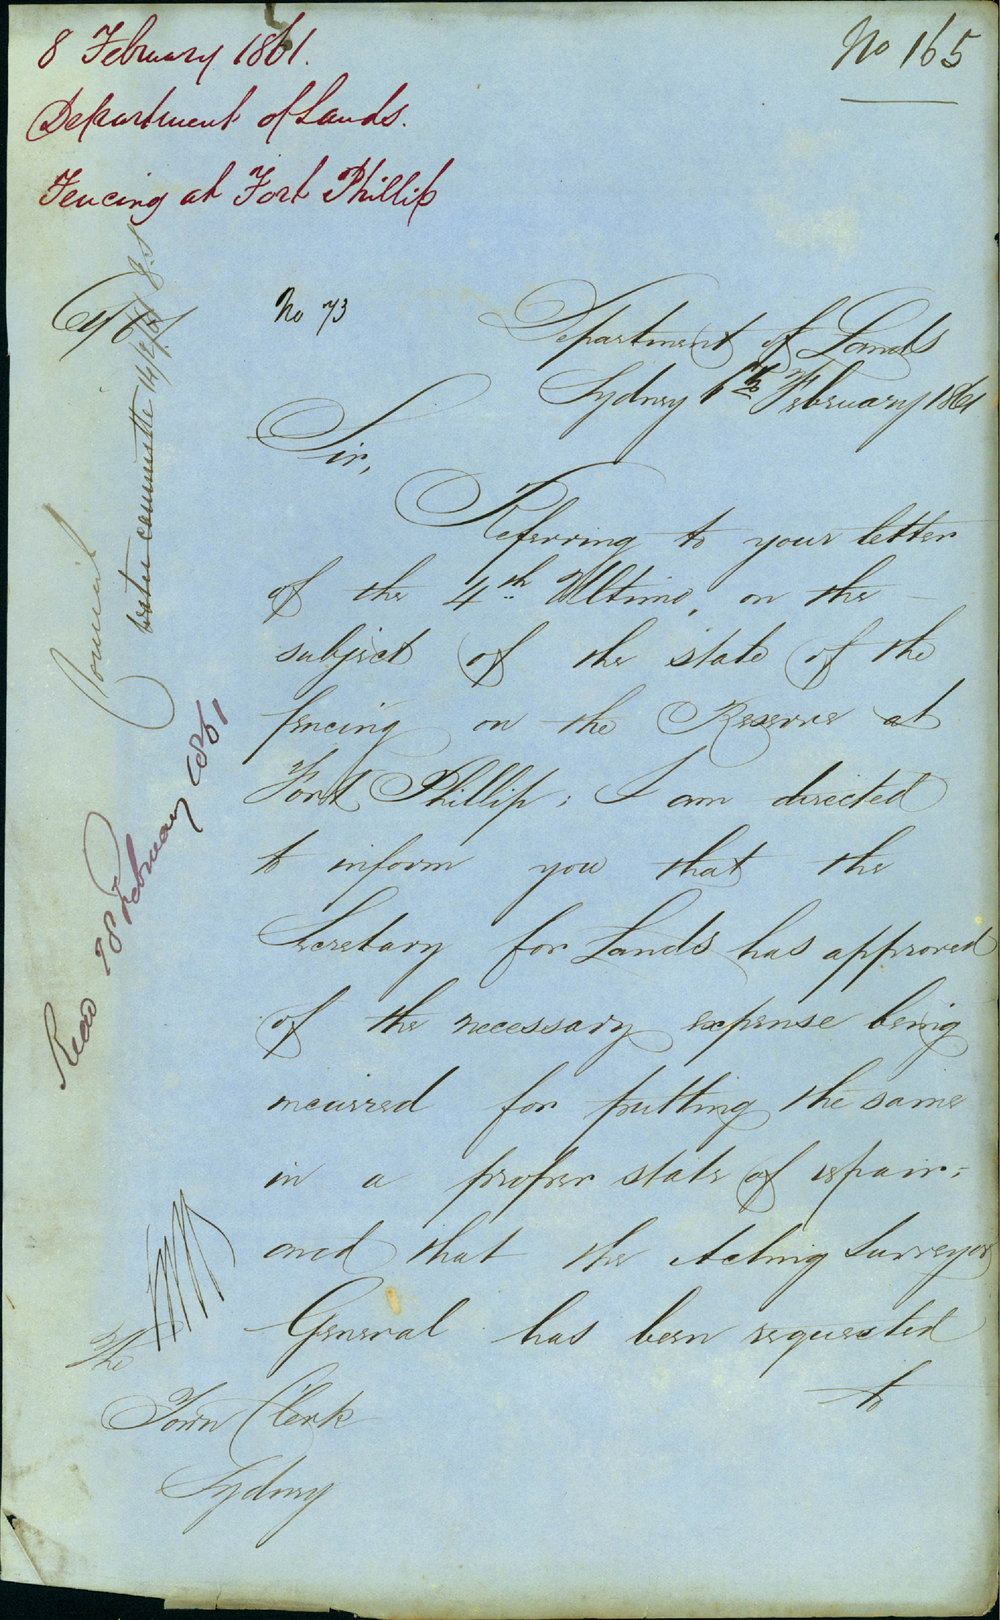 8 February 1861.
No 165
Department of Lands.
Fencing at Fort Phillip
No 73
Department of Lands
Sydney 6th February 1861
Sir,
Referring to your letter
of the 4th Ultimo, on the
subject of the state of the
fencing on the Reserve at
Fort Phillip; I am directed
to inform you that the
Secretary for Lands has approved
of the necessary expense being
incurred for putting the same
in a proper state of repair;
and that the Acting Surveyor
General has been requested
to
The
Town Clerk
Sydney
Council
committee 14/2/61 J.S
Read February 1861